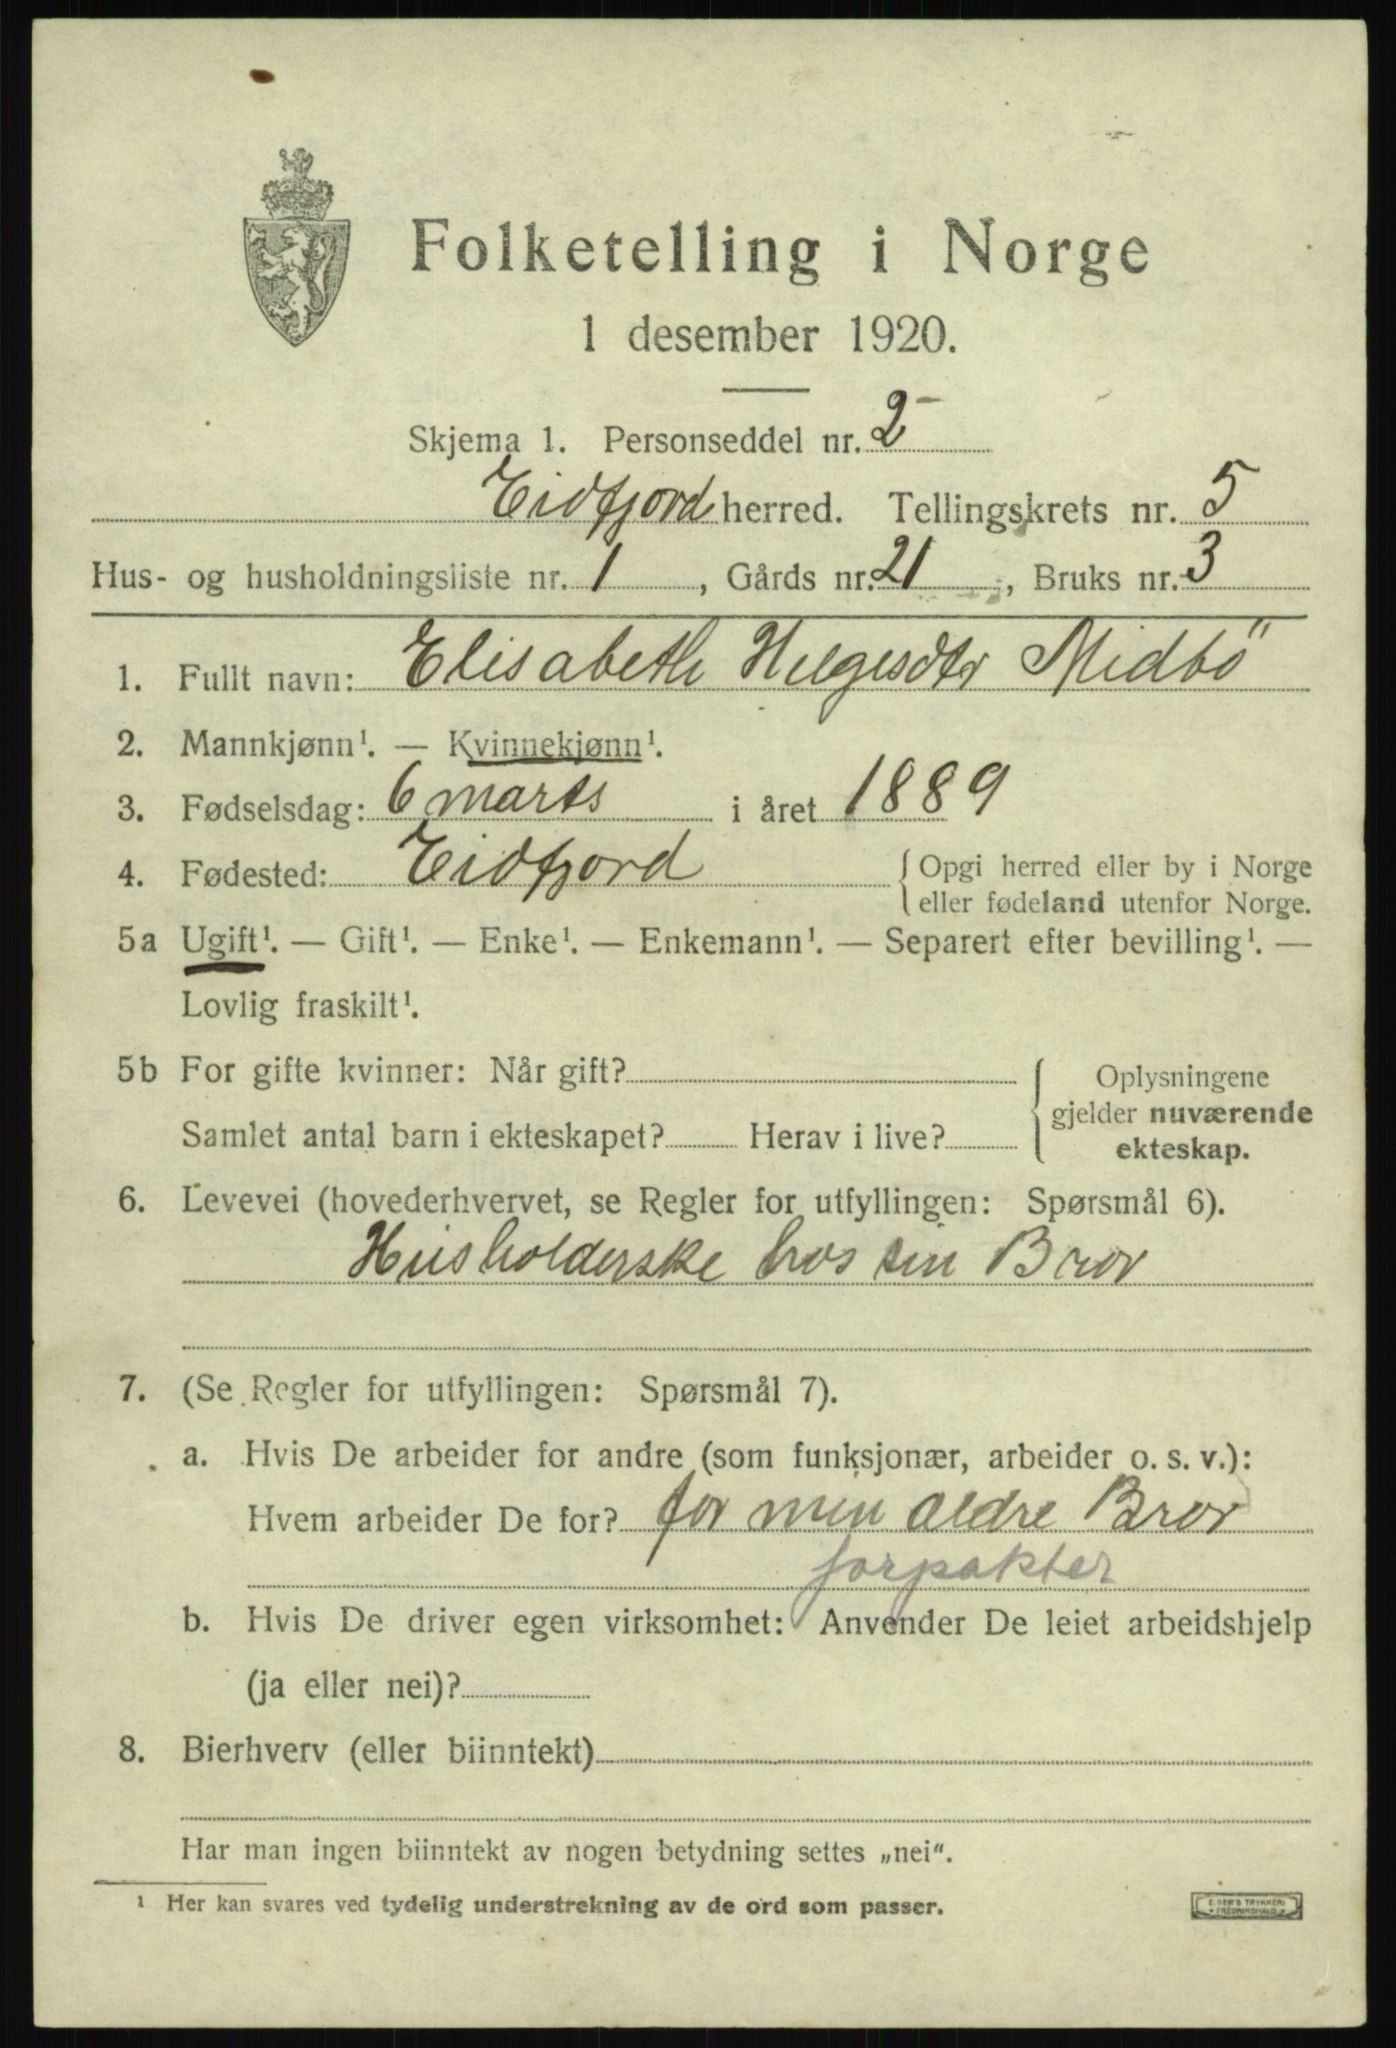 Folketelling i Norge
1 desember 1920.
Skjema 1. Personseddel nr. 2
Eidfjord herred. Tellingskrets nr. 5
Hus- og husholdningsliste nr. 1, Gårds nr. 21, Bruks nr. 3
1. Fullt navn: Elisabeth Helgesdtr Midbö
2. Mannkjønn¹. — Kvinnekjønn¹.
3. Fødselsdag: 6 marts i året 1889
4. Fødested: Eidfjord { Opgi herred eller by i Norge
eller fødeland utenfor Norge.
5a Ugift¹. — Gift¹. — Enke¹. — Enkemann¹. — Separert efter bevilling¹. —
Lovlig fraskilt¹.
5b For gifte kvinner: Når gift? { Oplysningene
gjelder nuværende
Samlet antal barn i ekteskapet? Herav i live? ekteskap.
6. Levevei (hovederhvervet, se Regler for utfyllingen: Spørsmål 6).
Husholderske hos sin Bror
7. (Se Regler for utfyllingen: Spørsmål 7).
a. Hvis De arbeider for andre (som funksjonær, arbeider o. s. v.):
Hvem arbeider De for? for min ældre Bror
forpakter
b. Hvis De driver egen virksomhet: Anvender De leiet arbeidshjelp
(ja eller nei)?
8. Bierhverv (eller biinntekt)
Har man ingen biinntekt av nogen betydning settes „nei“.
¹ Her kan svares ved tydelig understrekning av de ord som passer.